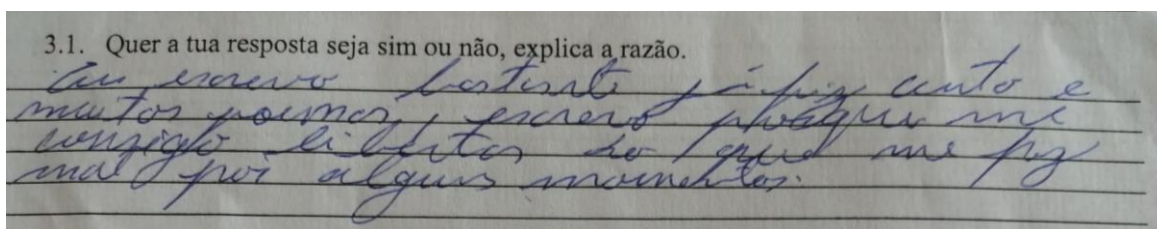 3.1. Quer a tua resposta seja sim ou não, explica a razão.
Eu escrevo bastante já fiz conto e
muitos poemas, escrevo porque me
consigo libertar do que me faz
mal por alguns momentos.